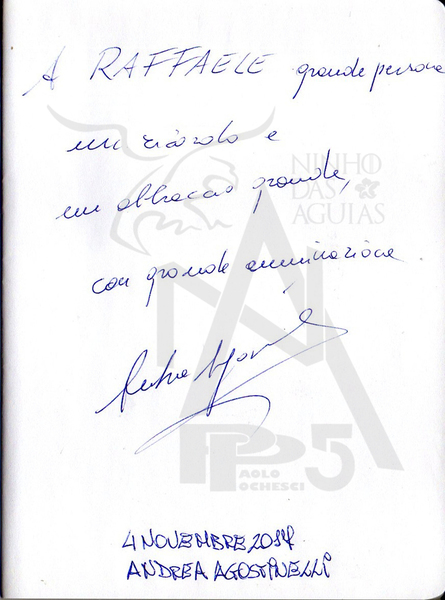 A RAFFAELE grande persona
un ricordo e
un abbraccio grande,
con grande ammirazione
NINHO
DAS
AGUIAS
PP5
PAOLO
POCHESCI
4 NOVEMBRE 2014
ANDREA AGOSTINELLI